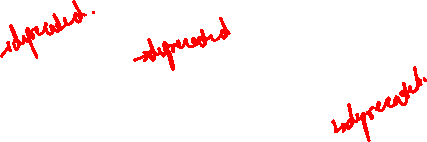 →deprecated.
→deprecated
→deprecated.